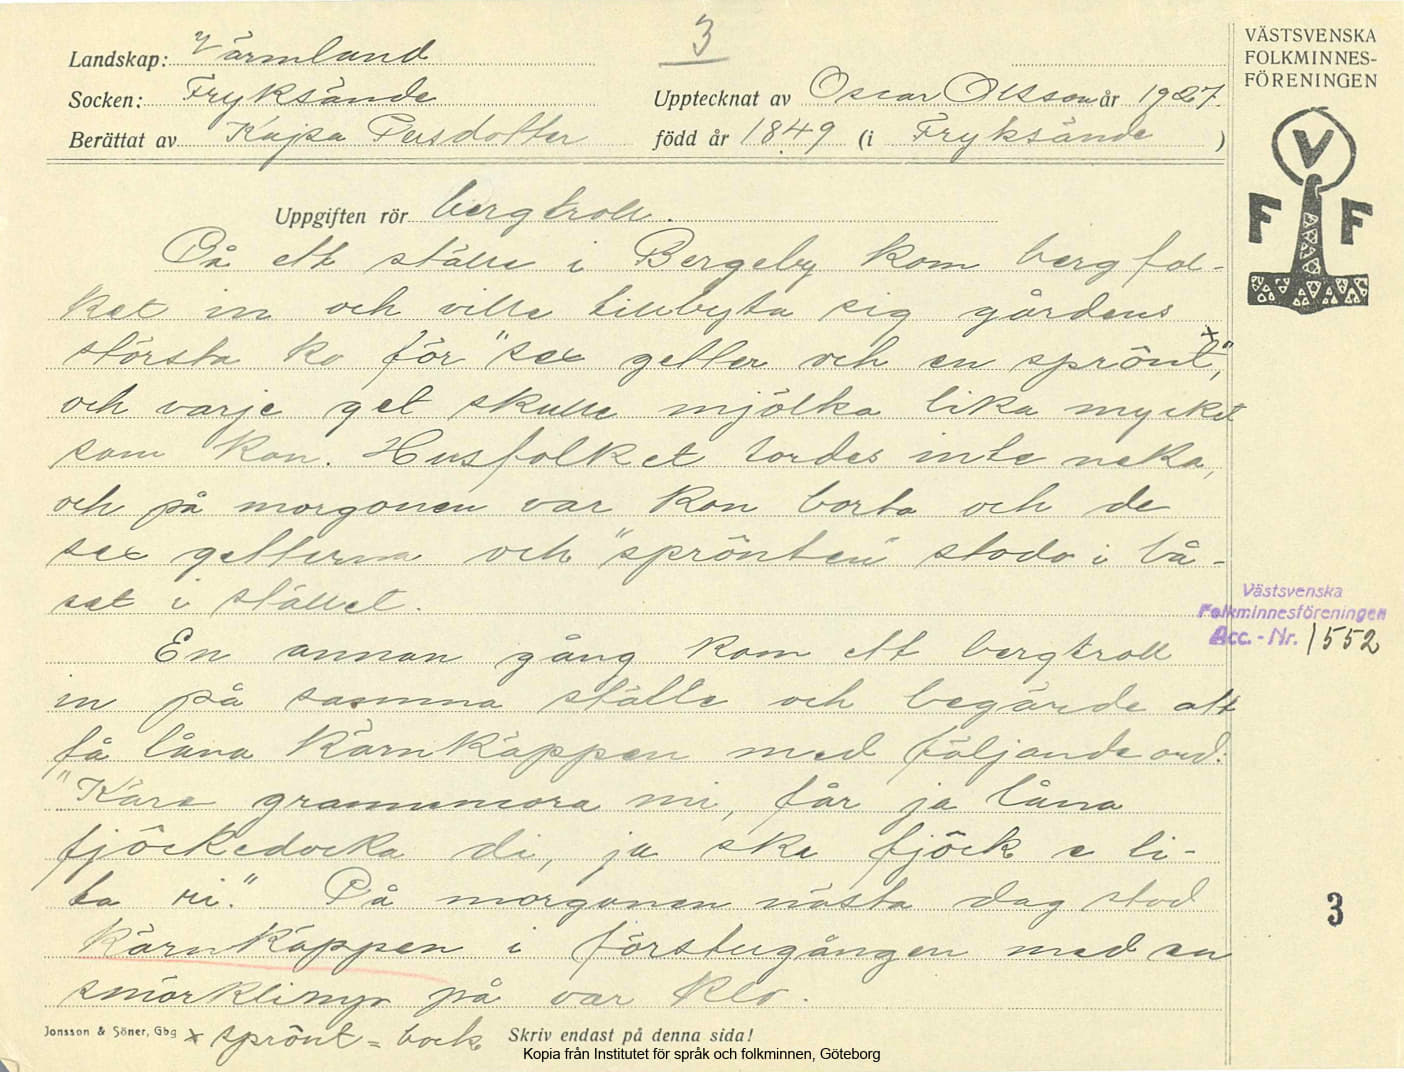 3
Landskap: Värmland
Socken: Fryksände
Upptecknat av Oscar Olsson år 1927.
Berättat av Kajsa Persdotter
född år 1849 (i Fryksände )
Uppgiften rör bergtroll.
På ett ställe i Bergeby kom bergfol-
ket in och ville tillbyta sig gårdens
största ko för "sex getter och en sprönt x",
och varje get skulle mjölka lika mycket
som kon. Husfolket tordes inte neka,
och på morgonen var kon borta och de
sex getterna och "sprönten" stodo i bå-
set i stället.
En annan gång kom ett bergtroll
in på samma ställe och begärde att
få låna kärnkäppen med följande ord:
"Kära grannemora mi, får ja låna
fjöckedocka di, ja ska fjöck e li-
ta ri." På morgonen nästa dag stod
kärnkäppen i förstugången med en
smörklimp på var klo.
Jonsson & Söner, Gbg
x sprönt = bock
Skriv endast på denna sida!
Kopia från Institutet för språk och folkminnen, Göteborg
VÄSTSVENSKA
FOLKMINNES-
FÖRENINGEN
V
F F
Västsvenska
Folkminnesföreningen
Acc.-Nr. 1552
3